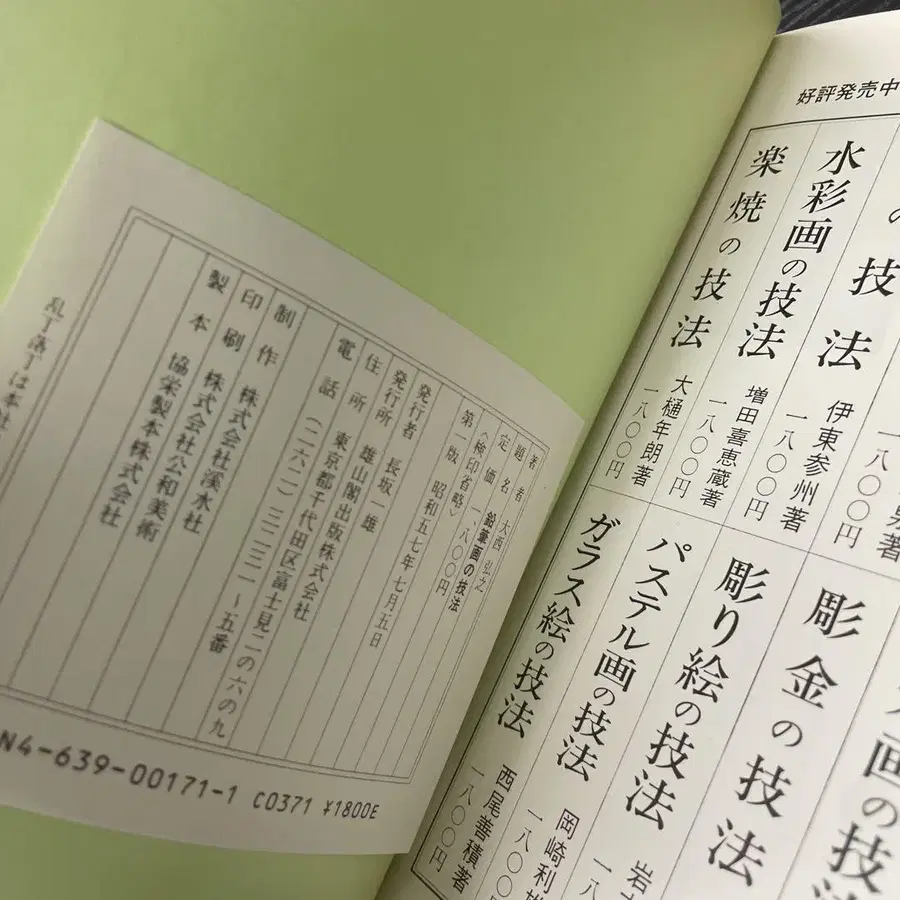 著者 大西 弘之
題名 鉛筆画の技法
定価 一、八〇〇円
〈検印省略〉
第一版 昭和五七年七月五日
発行者 長坂一雄
発行所 雄山閣出版株式会社
住所 東京都千代田区富士見二の六の九
電話 (二六二)三二三一~五番
制作 株式会社渓水社
印刷 株式会社公和美術
製本 協栄製本株式会社
乱丁落丁は本社
N4-639-00171-1 C0371 ¥1800E
好評発売中
の技法 伊東参州著 一八〇〇円
水彩画の技法 増田喜恵蔵著 一八〇〇円
楽焼の技法 大樋年朗著 一八〇〇円
画の技法
彫金の技法
彫り絵の技法
パステル画の技法 岡崎利
ガラス絵の技法 西尾善積著 一八〇〇円